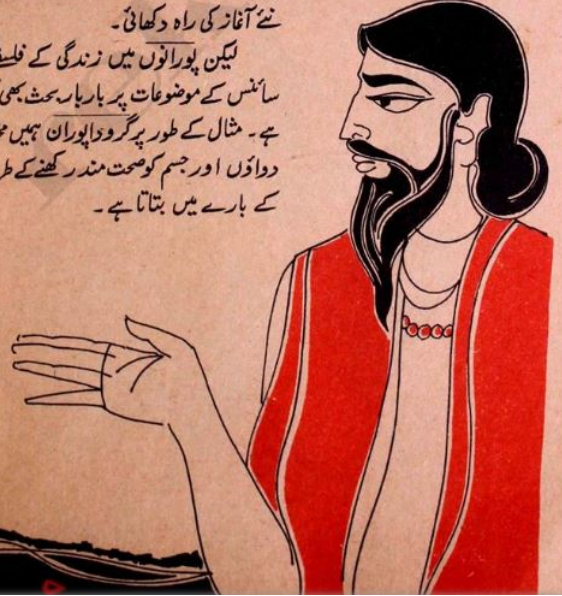 نئے آغاز کی راہ دکھائی۔
لیکن پورانوں میں زندگی کے
سائنس کے موضوعات پر بار بار بحث بھی
ہے۔ مثال کے طور پر گروداپوران ہمیں
دواؤں اور جسم کو صحت مند رکھنے کے
کے بارے میں بتاتا ہے۔